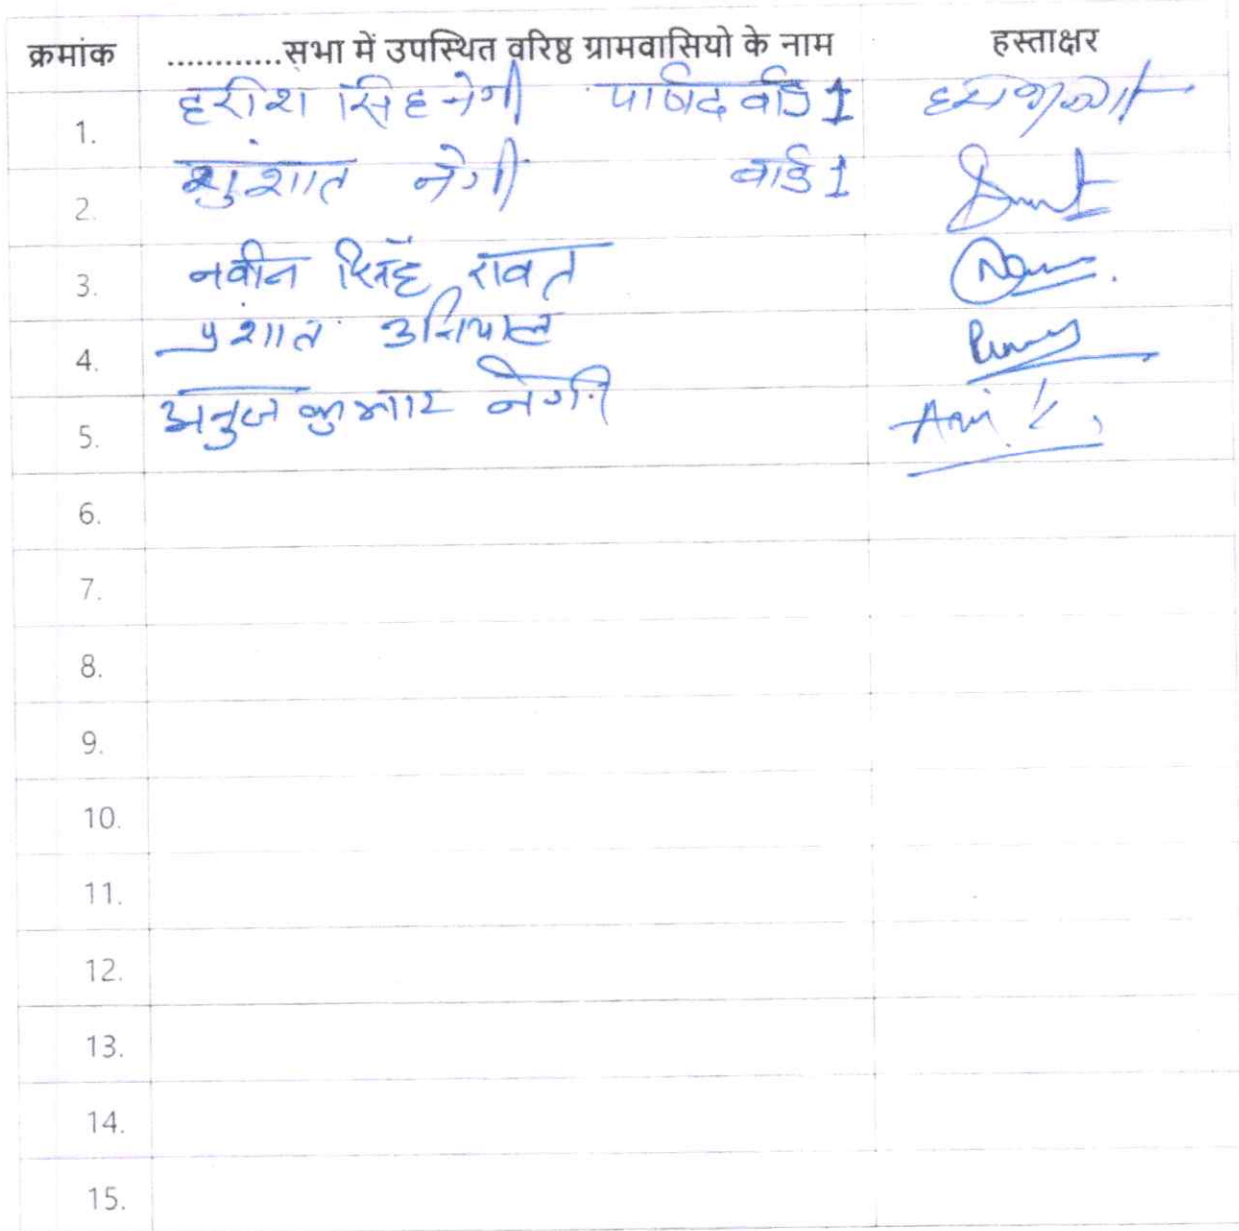 क्रमांक ............सभा में उपस्थित वरिष्ठ ग्रामवासियो के नाम हस्ताक्षर
1. हरीश सिंह नेगी पार्षद वार्ड 1
2. शुशांत नेगी वार्ड 1
3. नवीन सिंह रावत
4. प्रशांत उनियाल
5. अनुज कुमार नेगी
6.
7.
8.
9.
10.
11.
12.
13.
14.
15.